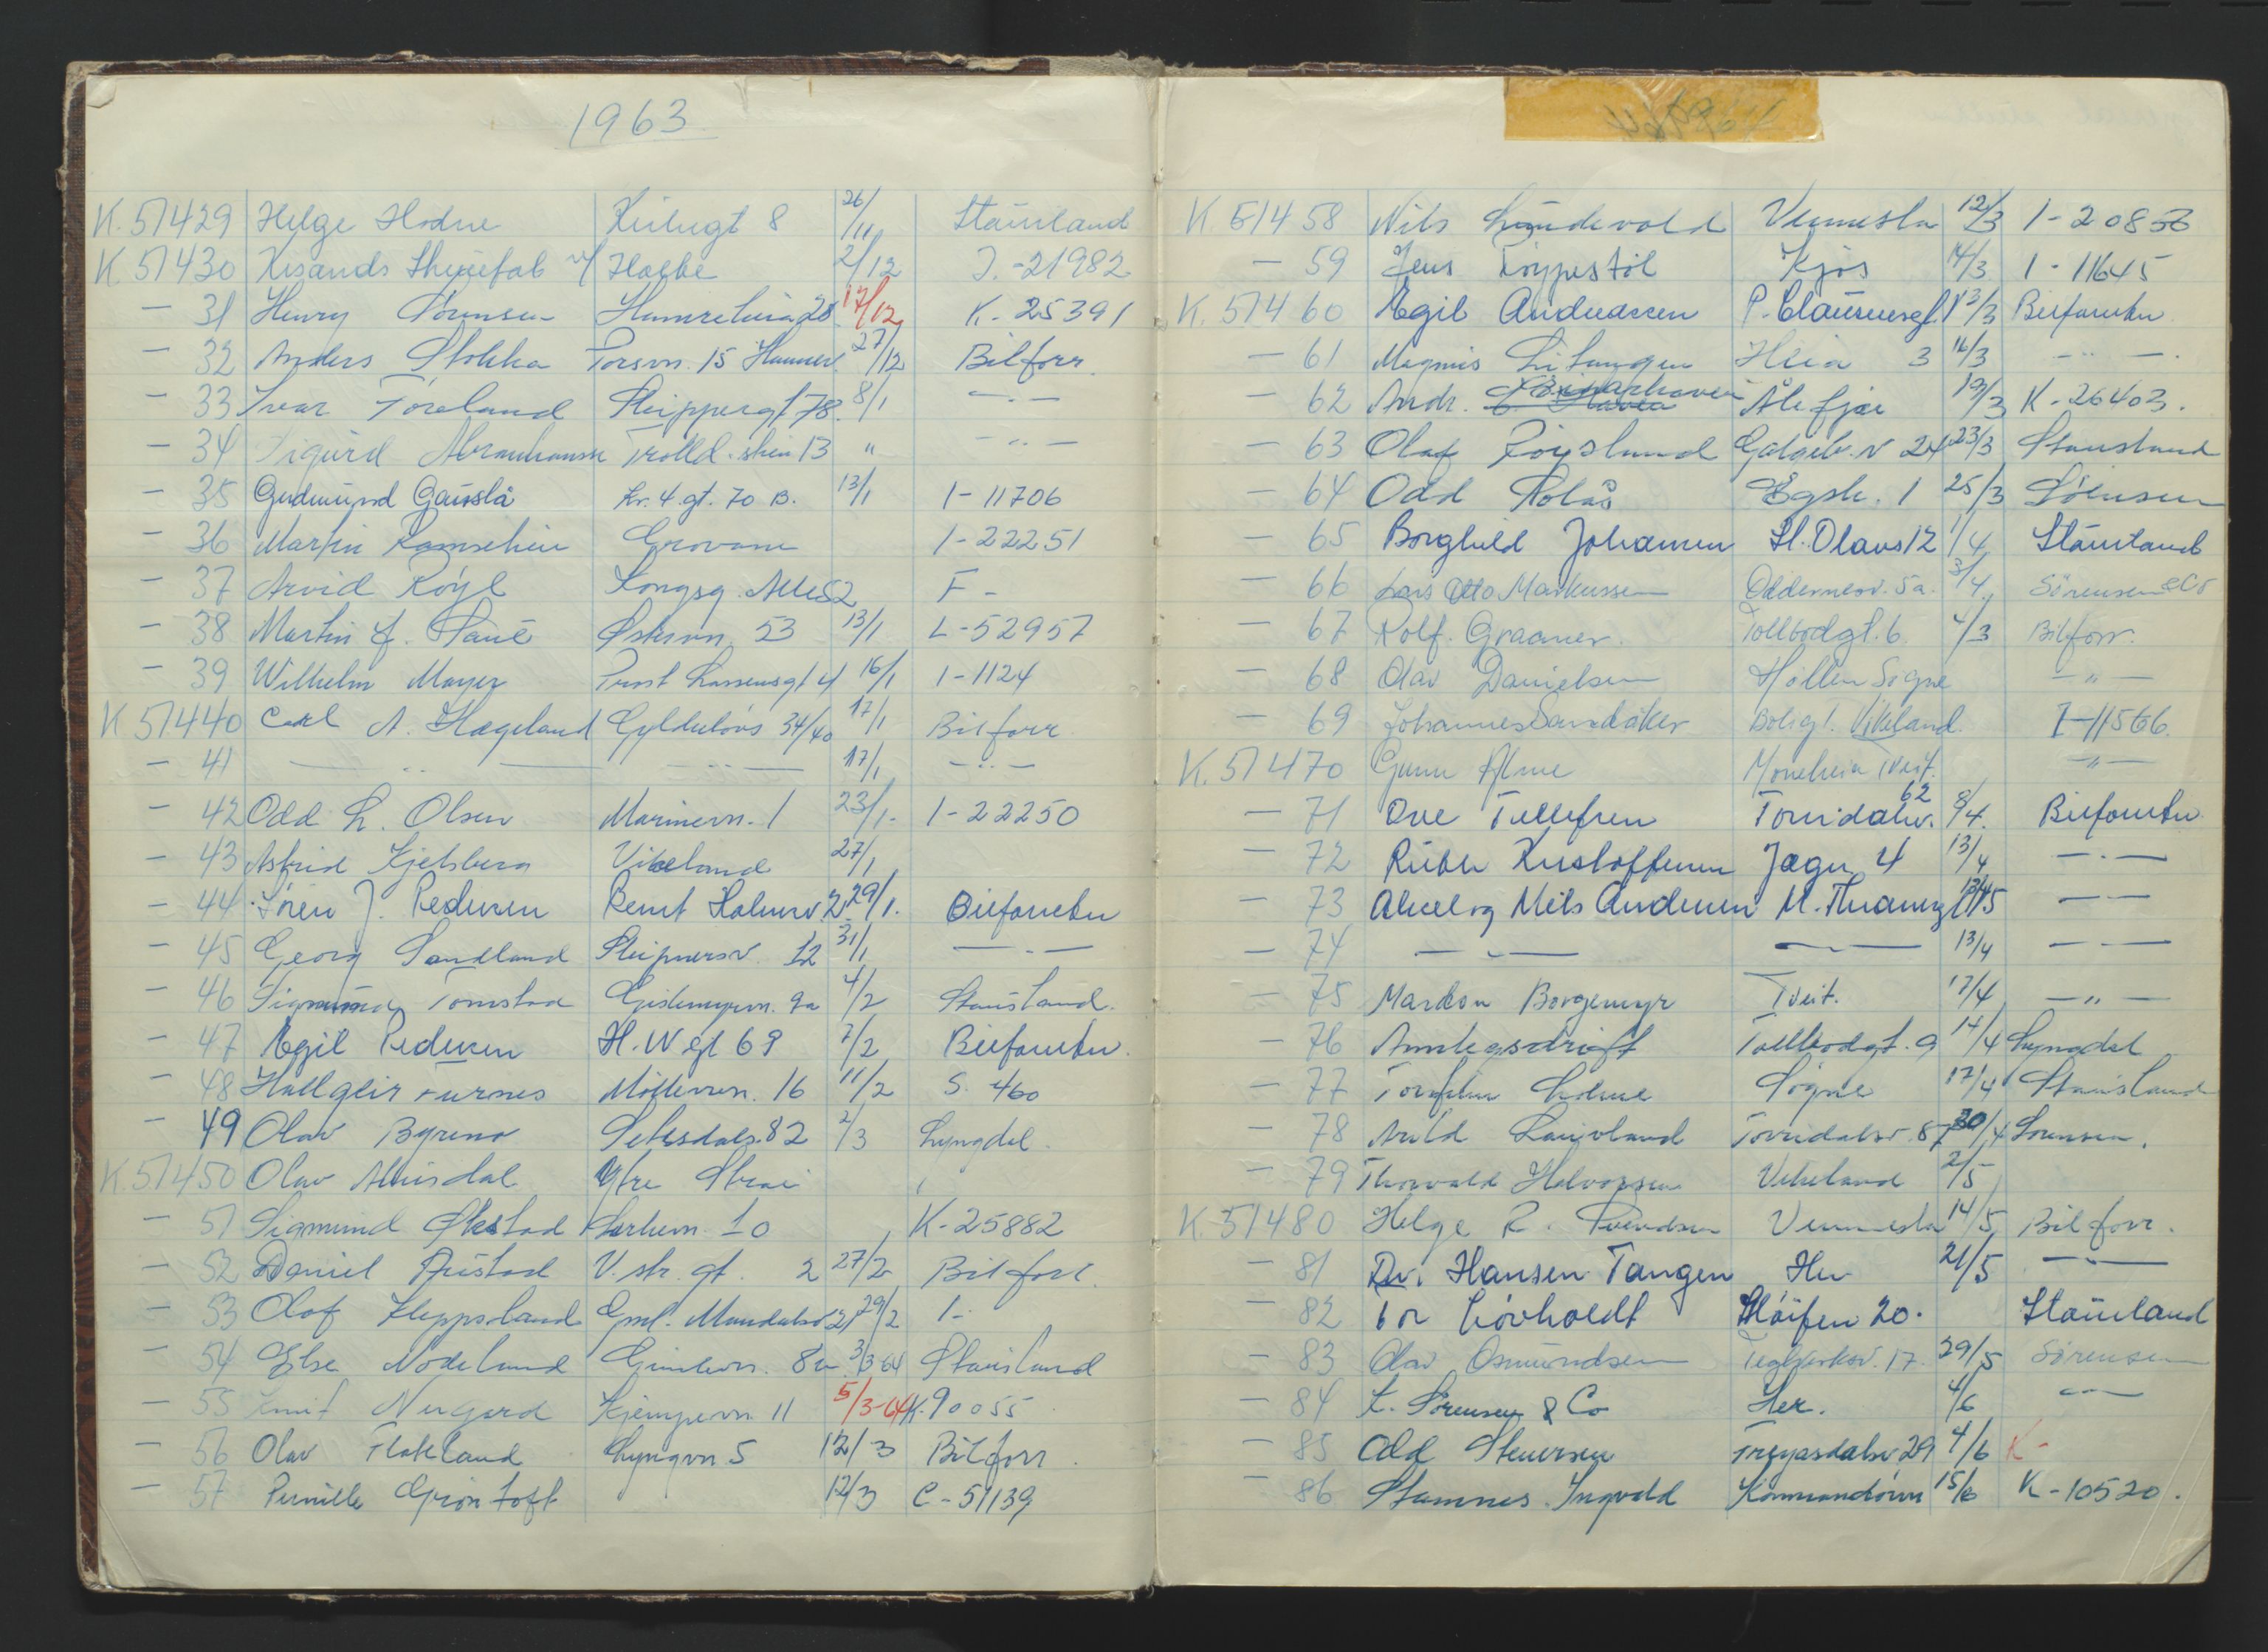 1963
K. 51429 Helge Hodne 8 26/11 Stausland
K. 51430 Krsands v/ Holbe 2/12 I.-21982
— 31 Henry Sørensen Hamreheia 28 17/12 K.-25391
— 32 Anders Stokka Torsvn. 15 Hannev. 27/12 Bilforr.
— 33 Ivar Töreland Skippergt 78. 8/1 — · —
— 34 Sigurd Abrahamsen Trolld.skin 13 " — " —
— 35 Gudmund Gauslå Kr. 4 gt. 70 B. 13/1 I-11706
— 36 Martin Grovane I-22251
— 37 Arvid Kongsg. Alle 52 F -
— 38 Martin Østervn. 53 13/1 L-52957
— 39 Wilhelm Mayer Prost Lassensgt 4 16/1 I-1124
K 51440 Carl A. Hægeland Gyldenløvs 34/40 17/1 Bilforr
— 41 — " — — " — 17/1 — " —
— 42 Odd L. Olsen Marinevn. 1 23/1- I-22250
— 43 Astrid Kjetsberg Vikeland 27/1
— 44 Sören J. Pedersen Bernt Holmsv 2. 29/1. Bilforretn
— 45 Georg Sandland Sleipnersv. 12 31/1 — · —
— 46 Sigmund Tomstad Gislemyrvn. 9a 4/2 Stausland.
— 47 Egil Pedersen H. W gt 69 7/2 Bilforretn.
— 48 Hallgeir Furnes Möllevn. 16 11/2 S. 460
— 49 Olav Byremo Setesdalsv. 82 2/3 Lyngdal.
K. 51450 Olav Ytre Strai "
— 51 Sigmund Økstad 10 K-25882
— 52 Daniel Austad V. str. gt. 2 27/2 Bilforr.
— 53 Olaf Kleppsland Gml. Mandalsv 21 29/2 I-
— 54 Else Nodeland Gimlevn. 8a 3/3-64 Stausland
— 55 Knut Nygård Kjempevn. 11 5/3-64 K-90055
— 56 Olav Flakland Lyngvn 5 12/3 Bilforr.
— 57 Pernille Gröntoft 12/3 C-51139
K. 51458 Nils Lundevold Vennesla 12/3 I-20856
— 59 Jens Tryppestöl Kjos 14/3 I-11645
K. 51460 Egil Andreassen P. Clausensgt. 1 13/3 Bilforretn
— 61 Magnus Heia 3 16/3 — " —.
— 62 Andr. Ålefjær 19/3 K-26403.
— 63 Olaf Röysland Galgeb. v 24 23/3 Stausland
— 64 Odd Solås Egsh. 1 25/3 Sörensen
— 65 Borghild Johansen St. Olavs 12 1/4 Stausland
— 66 Lars Otto Markussen Oddernesv. 5a. 3/4. Sörensen & Co
— 67 Rolf. Graaner. Tollbodgt. 6. 4/3 Bilforr.
— 68 Olav Danielsen Höllen Sögne — " —
— 69 Johannes Sandåker Boligt. Vikeland. I-11566.
K. 51470 Gunn Alme Moneheia Tveit. — " —
— 71 Ove Tellefsen Torridalsv. 62 8/4. Bilforretn
— 72 Kristoffersen Jæger 4 13/4 — · —
— 73 Nils Andersen M. 13/4 — —
— 74 — — — — — 13/4 — —
— 75 Mardon Borgemyr Tveit. 17/4 — " —
— 76 Anlegsdrift Tollbodgt. 9 14/4 Lyngdal
— 77 Torfinn Holme Sögne 17/4 Stausland
— 78 Arild Lauvland Torridalsv. 87 30/4 Sörensen.
— 79 Thorvald Halvorsen Vikeland 2/5
K. 51480 Helge R. Svendsen Vennesla 14/5 Bilforr.
— 81 Dr. Hansen Tangen Her 21/5 — " —
— 82 Lövholdt 20. Stausland
— 83 Olav Osmundsen Teglverksv. 17. 29/5 Sörensen
— 84 L. Sörensen & Co Her. 4/6 — " —
— 85 Odd Steversen Tregasdalsv 29 4/6 K-
— 86 Stamnes. Ingvald Kommandörvn 15/6 K-10520.